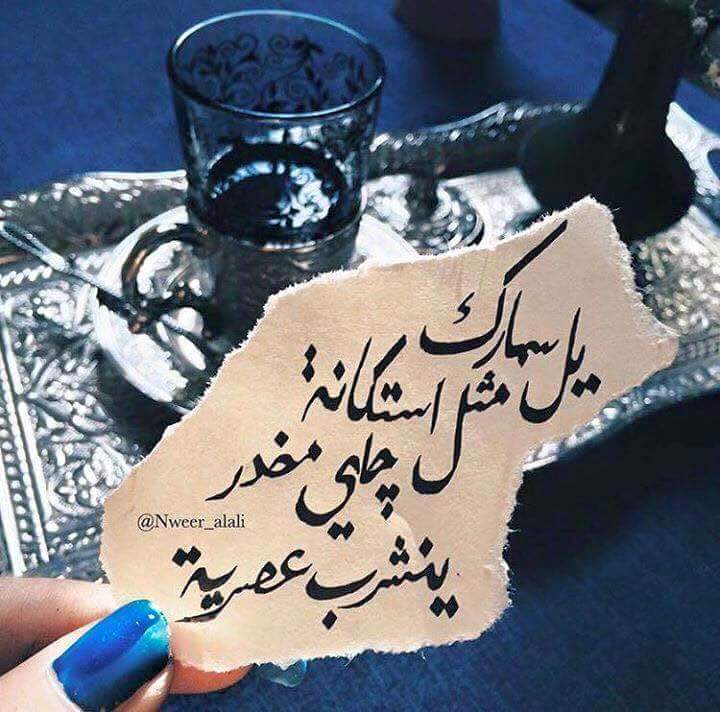 يل سمارك
مثل استكانة
چاي مخدر
@Nweer_alali
ينشرب عصرية